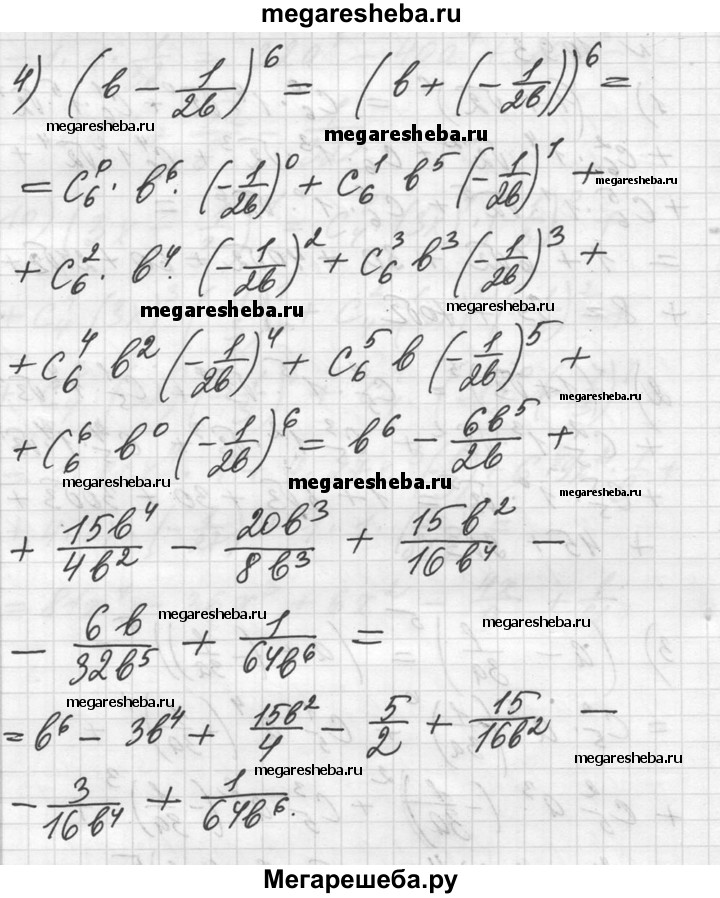 megaresheba.ru
4) (b - 1/2b)^6 = (b + (-1/2b))^6 =
megaresheba.ru megaresheba.ru
= C_6^0 · b^6 · (-1/2b)^0 + C_6^1 b^5 (-1/2b)^1 +
megaresheba.ru
+ C_6^2 · b^4 · (-1/2b)^2 + C_6^3 b^3 (-1/2b)^3 +
megaresheba.ru megaresheba.ru
+ C_6^4 b^2 (-1/2b)^4 + C_6^5 b (-1/2b)^5 +
megaresheba.ru
+ C_6^6 b^0 (-1/2b)^6 = b^6 - 6b^5/2b +
megaresheba.ru megaresheba.ru megaresheba.ru
+ 15b^4/4b^2 - 20b^3/8b^3 + 15b^2/16b^4 -
megaresheba.ru megaresheba.ru
- 6b/32b^5 + 1/64b^6 =
megaresheba.ru
= b^6 - 3b^4 + 15b^2/4 - 5/2 + 15/16b^2 -
megaresheba.ru megaresheba.ru
- 3/16b^4 + 1/64b^6.
megaresheba.ru
Мегарешеба.ру